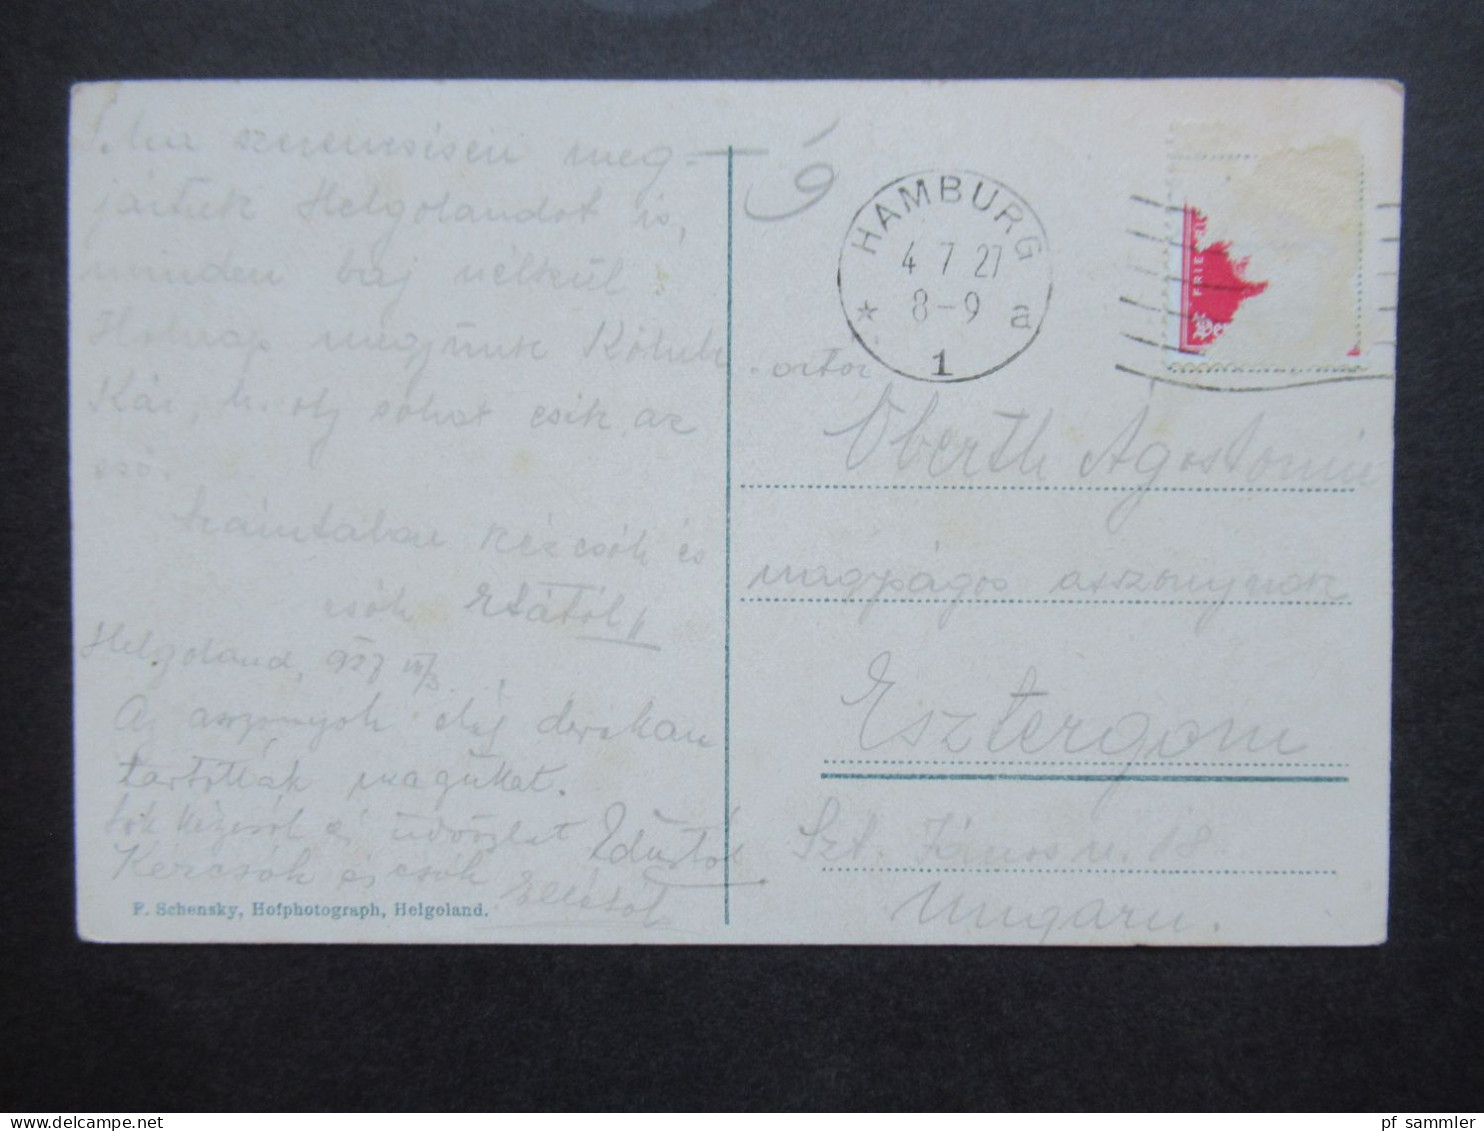 szerencsésen meg-
jártuk Helgolandot is,
minden baj nélkül.
Holnap megyünk
Kár, h. oly sokat esik az
eső.
kézcsók és
csók Etától
Helgoland, 927 VII/3.
Az asszonyok elég derekan
tartották magukat.
Sok kézcsók és üdvözlet
Kézcsók és csók
F. Schensky, Hofphotograph, Helgoland.
HAMBURG
4 7 27
8-9
* a
1
FRIE
Oberth Agostonné
nagyságos asszonynak
Esztergom
Szt. János u. 18.
Ungarn.
pf sammler
www.delcampe.net